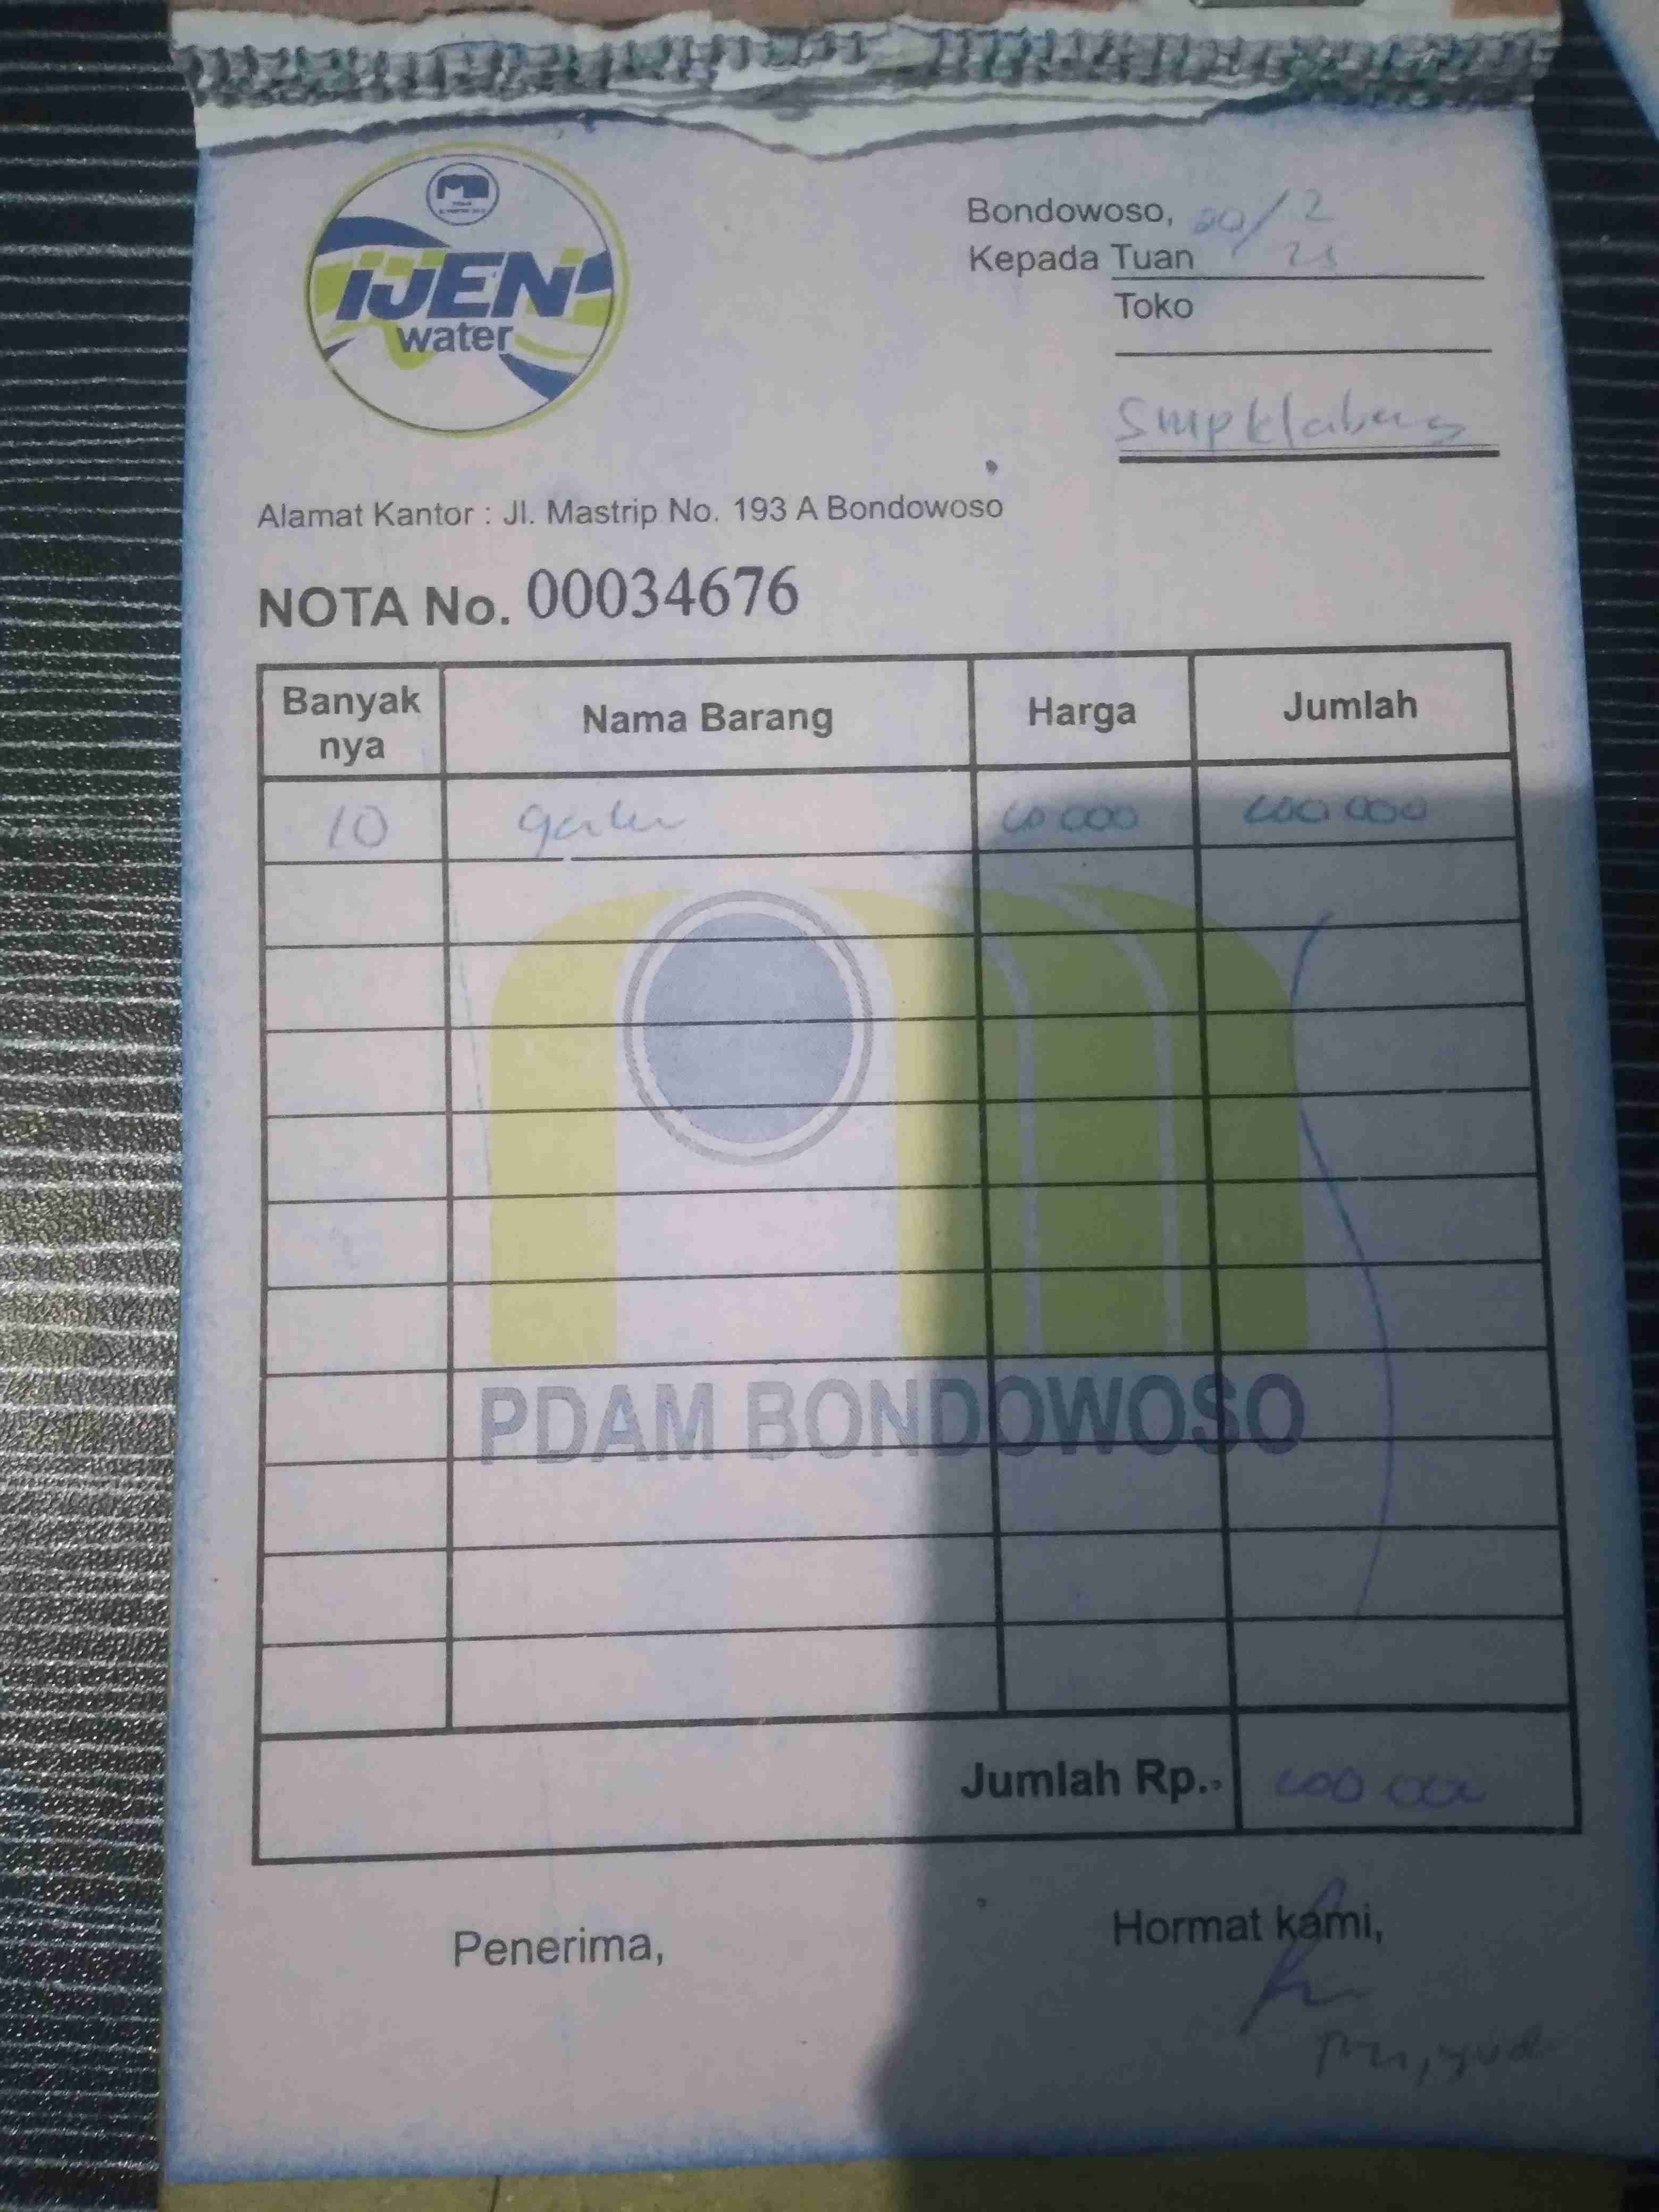 IJEN
water
Bondowoso, 20/2
Kepada Tuan 25
Toko
Smp klabang
Alamat Kantor : Jl. Mastrip No. 193 A Bondowoso
NOTA No. 00034676
Banyak nya Nama Barang Harga Jumlah
10 galon
PDAM BONDOWOSO
Jumlah Rp.-
Penerima,
Hormat kami,